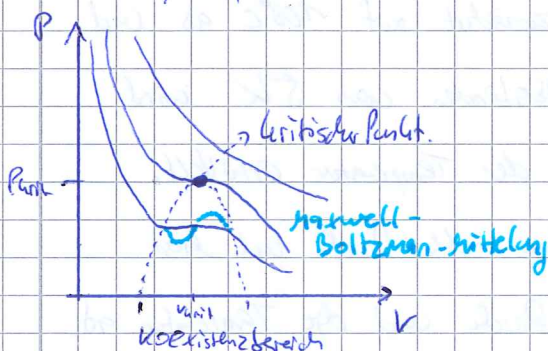 P
kritischer Punkt.
Pkrit
Maxwell-
Boltzman-Mittelung
Vkrit
V
Koexistenzbereich